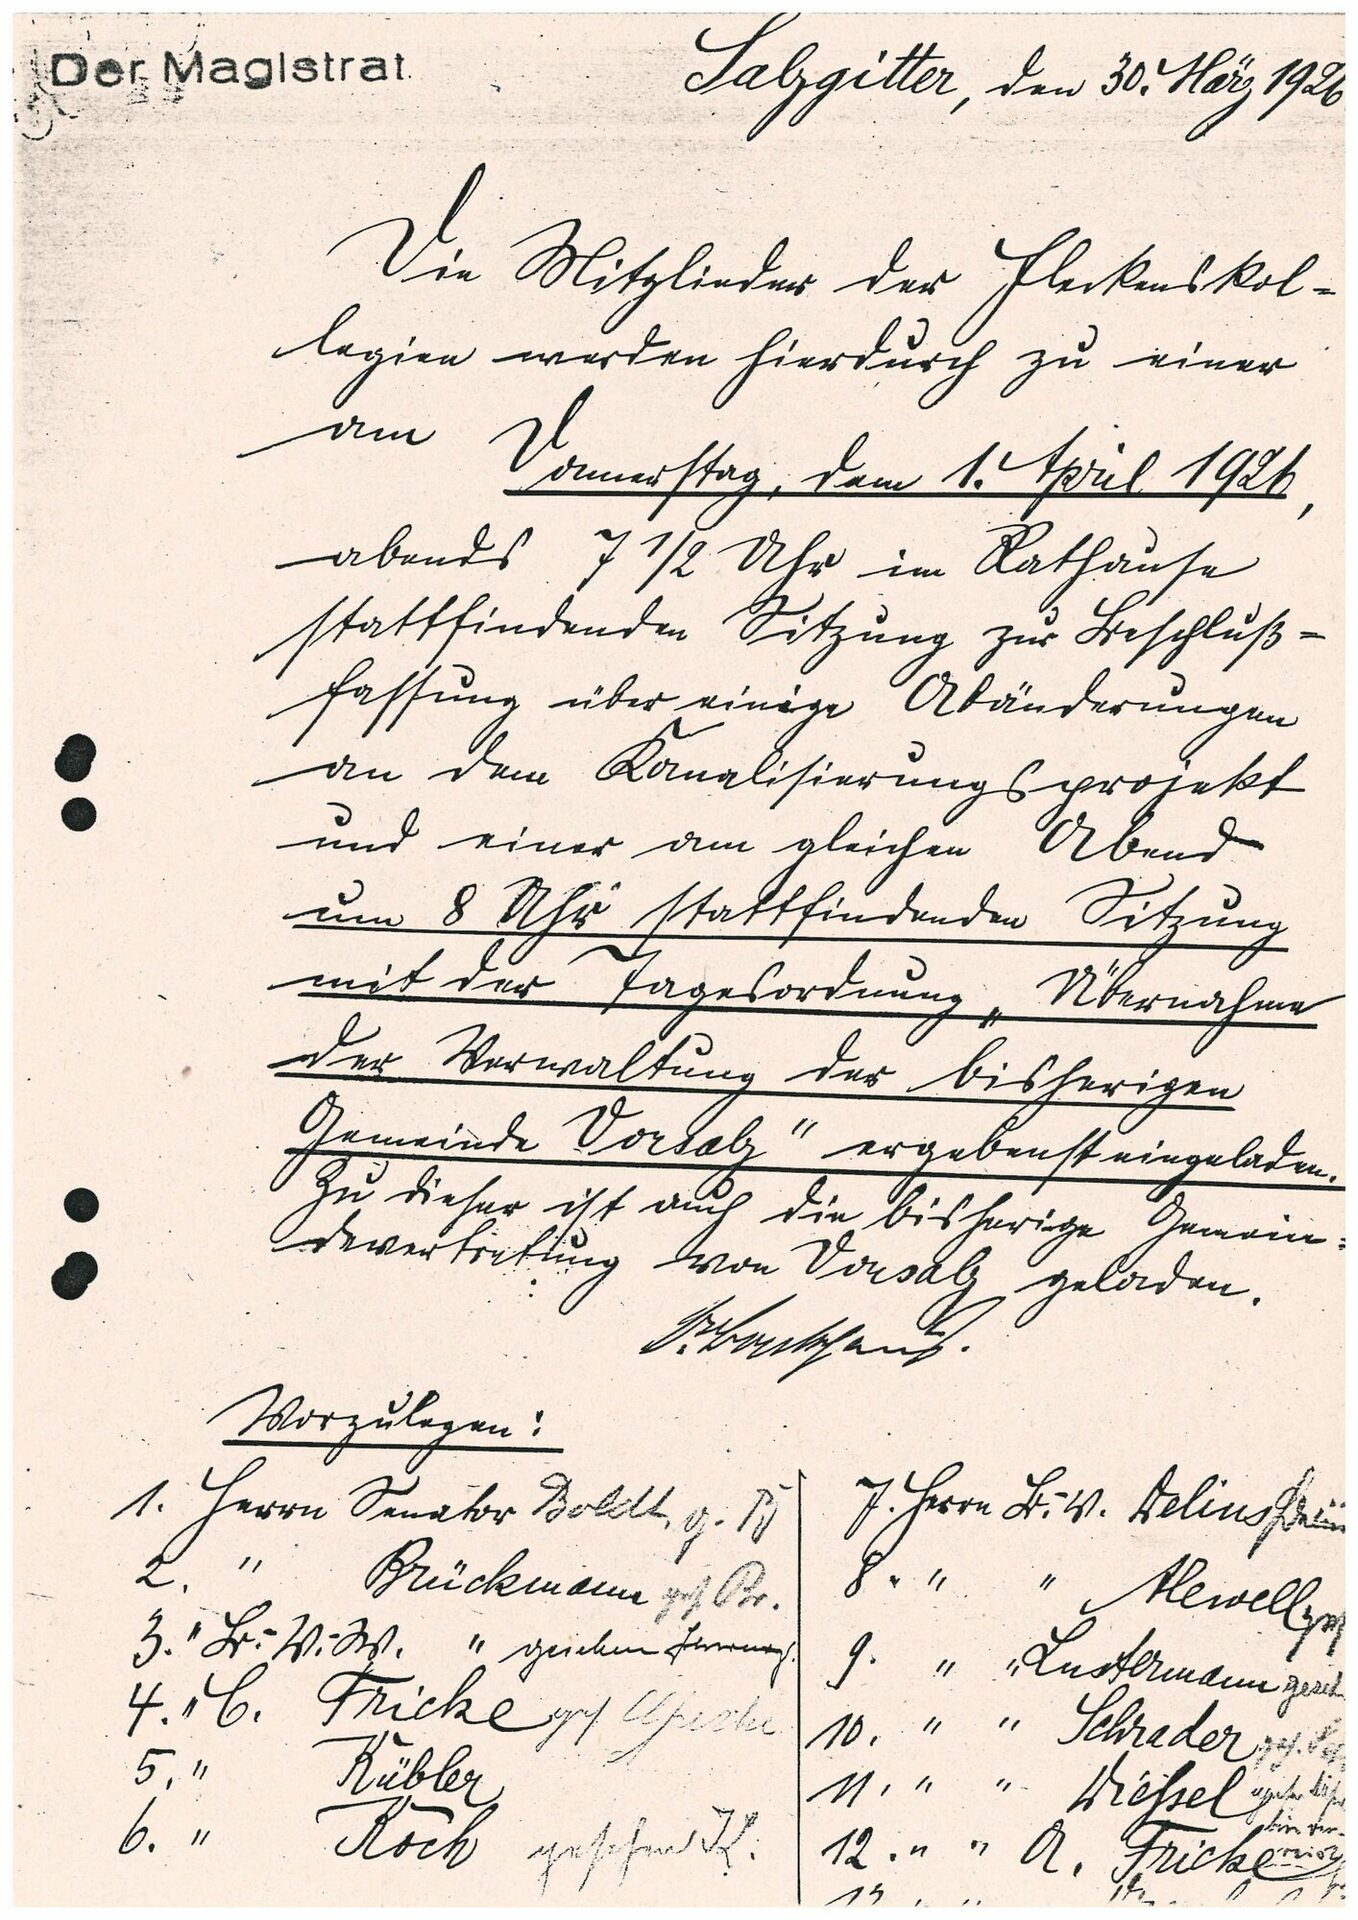 Der Magistrat
Salzgitter, den 30. März 1926
Die Mitglieder der Fleckenskol-
legien werden hierdurch zu einer
am
Donnerstag, dem 1. April 1926,
abends 7 1/2 Uhr im Rathause
stattfindenden Sitzung zur Beschluß-
fassung über einige Abänderungen
an dem Kanalisierungsprojekt
und einer am gleichen Abend
um 8 Uhr stattfindenden Sitzung
mit der Tagesordnung „Übernahme
der Verwaltung der bisherigen
Gemeinde Vorsalz" ergebenst eingeladen.
Zu dieser ist auch die bisherige Gemein-
devertretung von Vorsalz geladen.
Vorzulegen:
1. Herrn Senator Boldt, g.
2. " Brückmann ges. Br.
3. " B.-V.-W. "
4. " C. Fricke ges. CFricke
5. " Kübler
6. " Koch gesehen K.
7. Herrn B.-V. Delius
8. " " Alewell ges
9. " " Lustermann geseh.
10. " " Schrader ges.
11. " " Diessel
12. " " A. Fricke